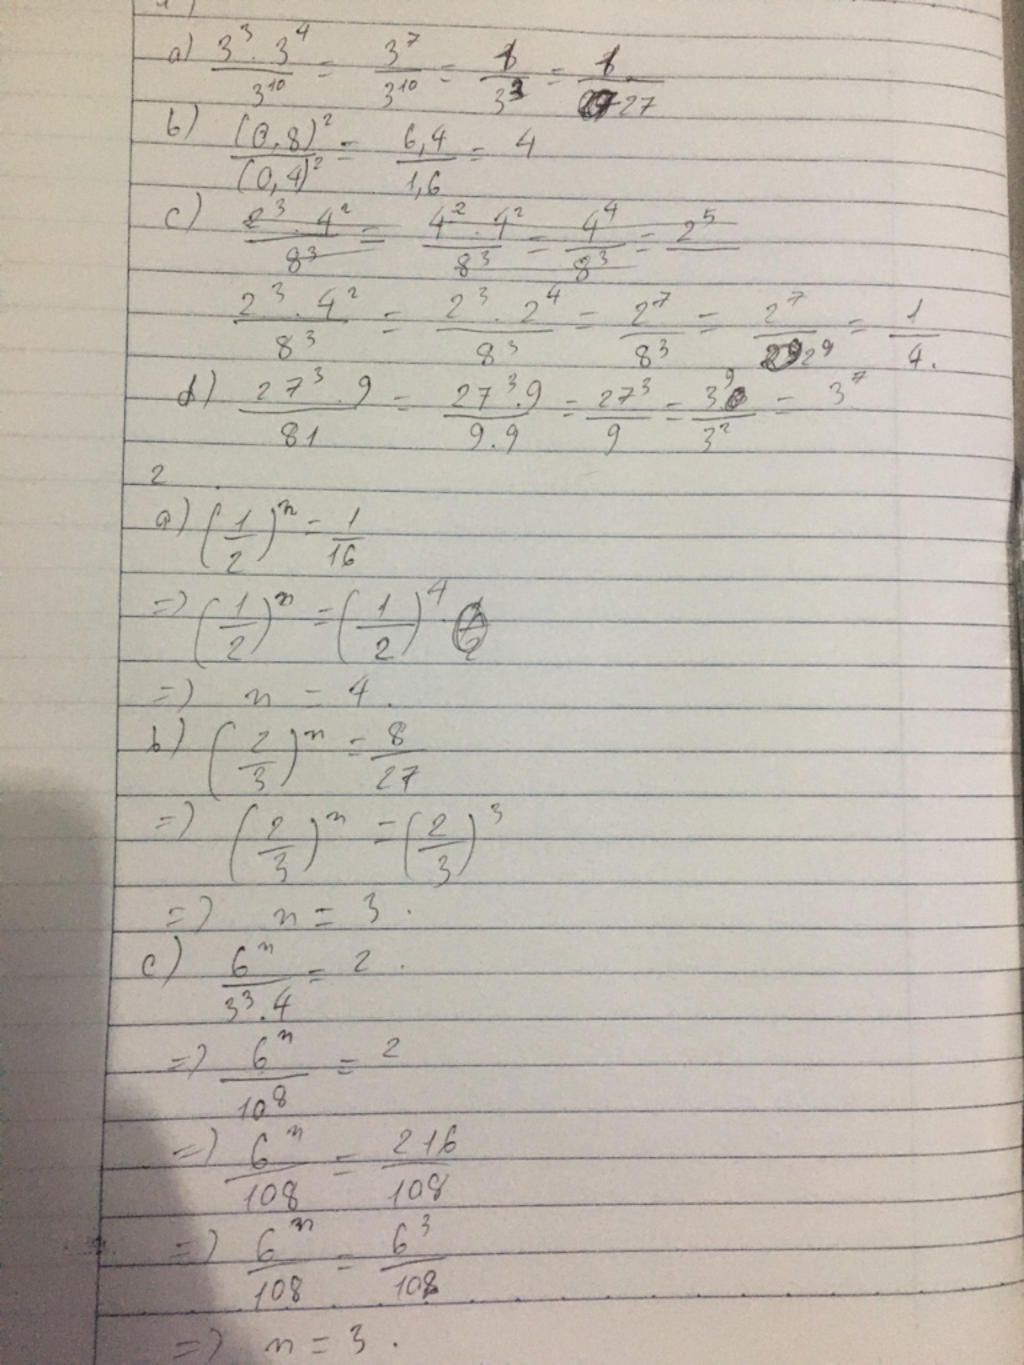 a) 3³ . 3⁴ / 3¹⁰ = 3⁷ / 3¹⁰ = 1 / 3³ = 1 / 27
b) (0,8)² / (0,4)² = 6,4 / 1,6 = 4
c) 2³ . 4² / 8³ = 4² . 4² / 8³ = 4⁴ / 8³ = 2⁵
2³ . 4² / 8³ = 2³ . 2⁴ / 8³ = 2⁷ / 8³ = 2⁷ / 2⁹ = 1 / 4.
d) 27³ . 9 / 81 = 27³ . 9 / 9 . 9 = 27³ / 9 = 3⁹ / 3² = 3⁷
2
a) (1/2)ⁿ = 1/16
=> (1/2)ⁿ = (1/2)⁴
=> n = 4.
b) (2/3)ⁿ = 8/27
=> (2/3)ⁿ = (2/3)³
=> n = 3.
c) 6ⁿ / 3³ . 4 = 2.
=> 6ⁿ / 108 = 2
=> 6ⁿ / 108 = 216 / 108
=> 6ⁿ / 108 = 6³ / 108
=> n = 3.